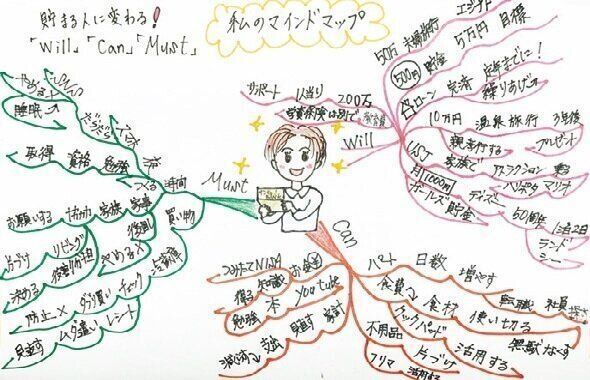 貯まる人に変わる!
「Will」「Can」「Must」
私のマインドマップ
50万 夫婦旅行
5万円 目標
500円 貯金
住宅ローン 完済 定年までに!
繰りあげ
10万円 温泉旅行 3年後
親孝行する プレゼント
USJ 家族で アトラクション
ハリポタ マリオ
月1000円
ボーナス貯金 ディズニー 50周年 1泊2日
ランド
シー
サポート 1人当り 200万
学資保険は別で
Will
Must
Can
睡眠
取得 資格 勉強
つくる 時間
お願いする 家族 家事
買い物
片づけ リビング
やめる
冷蔵庫
決める
防止 ダブり買い チェック
見直す ムダ遣い レシート
つみたてNISA お金
得る 知識
勉強 本 YouTube
減らす 支出 見直す 家計
パート 日数 増やす
転職 社員
食費 食材 使い切る
クックパッド 無駄なす
活用する
不用品 片づけ
フリマ 活用する